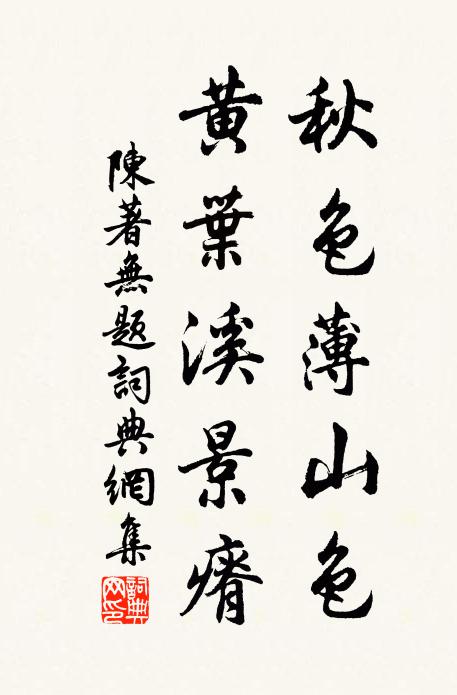 秋色薄山色
黃葉溪景瘠
陳著無題詞典網集
詞典网印